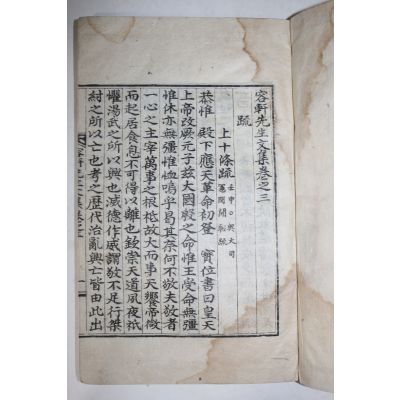 容軒先生文集卷之三
疏
上十條疏 壬申○與大司
憲聞劉敬疏
恭惟 殿下應天革命初登 寶位書曰皇天
上帝改厥元子玆大國殷之命惟王受命無疆
惟休亦無疆惟恤嗚乎曷其奈何不敬夫敬者
一心之主宰萬事之根柢故大而事天饗帝微
而起居食息不可得以離也欽崇天道夙夜祗
懼湯武之所以興也滅德作威謂敬不足行桀
紂之所以亡也考之歷代治亂興亡皆由此出